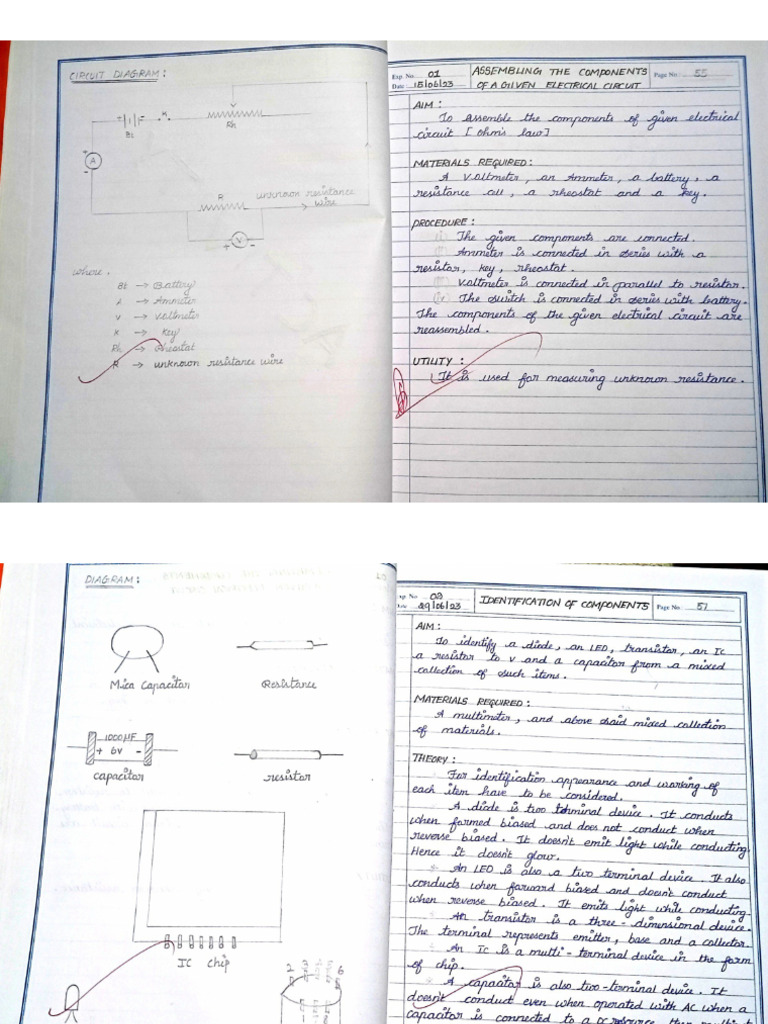 CIRCUIT DIAGRAM :
K
Bt
Rh
A
+
-
R
unknown resistance
wire
V
+
-
where,
Bt → Battery
A → Ammeter
V → Voltmeter
K → Key
Rh → Rheostat
R → unknown resistance wire
Exp. No. 01
Date : 15/06/23
ASSEMBLING THE COMPONENTS
OF A GIVEN ELECTRICAL CIRCUIT
Page No : 55
AIM :
To assemble the components of given electrical
circuit [ ohm's law]
MATERIALS REQUIRED :
A voltmeter, an Ammeter, a battery, a
resistance coil, a rheostat and a key.
PROCEDURE :
(i) The given components are connected.
Ammeter is connected in series with a
resistor, key, rheostat.
voltmeter is connected in parallel to resistor.
(iv) The switch is connected in series with battery.
The components of the given electrical circuit are
reassembled.
UTILITY :
It is used for measuring unknown resistance.
DIAGRAM :
Mica Capacitor
Resistance
1000μF
+ 6V -
capacitor
resistor
IC Chip
Exp. No
Date
29/06/23
IDENTIFICATION OF COMPONENTS
Page No : 57
AIM :
To identify a diode, an LED, transistor, an IC
a resistor to v and a capacitor from a mixed
collection of such items.
MATERIALS REQUIRED :
A multimeter, and above said mixed collection
of materials.
THEORY :
For identification appearance and working of
each item have to be considered.
A diode is two terminal device. It conducts
when formed biased and does not conduct when
reverse biased. It doesn't emit light while conducting.
Hence it doesn't glow.
An LED is also a two terminal device. It also
conducts when forward biased and doesn't conduct
when reverse biased. It emits light while conducting
An transistor is a three-dimensional device.
The terminal represents emitter, base and a collector.
An IC is a multi-terminal device in the form
of chip.
A capacitor is also two-terminal device. It
doesn't conduct even when operated with AC when a
capacitor is connected to a